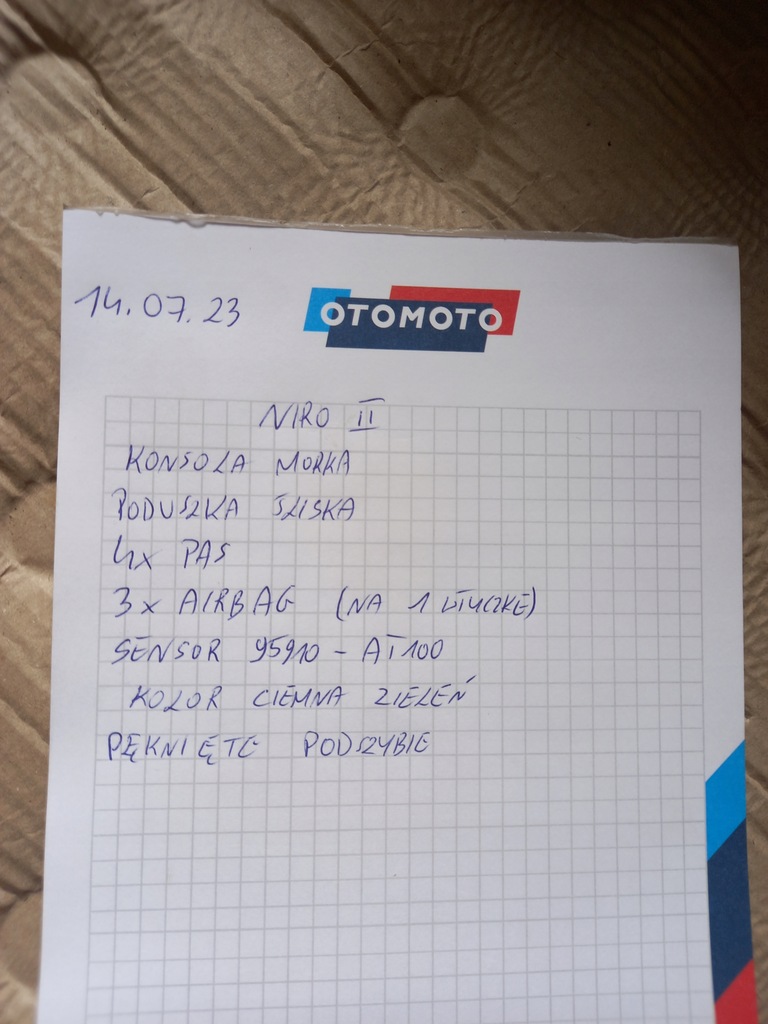 14.07.23
OTOMOTO
NIRO II
KONSOLA MORKA
PODUSZKA ŚLISKA
4x PAS
3x AIRBAG (NA 1 WTYCZKĘ)
SENSOR 95910-AT100
KOLOR CIEMNA ZIELEŃ
PĘKNIĘTE PODSZYBIE